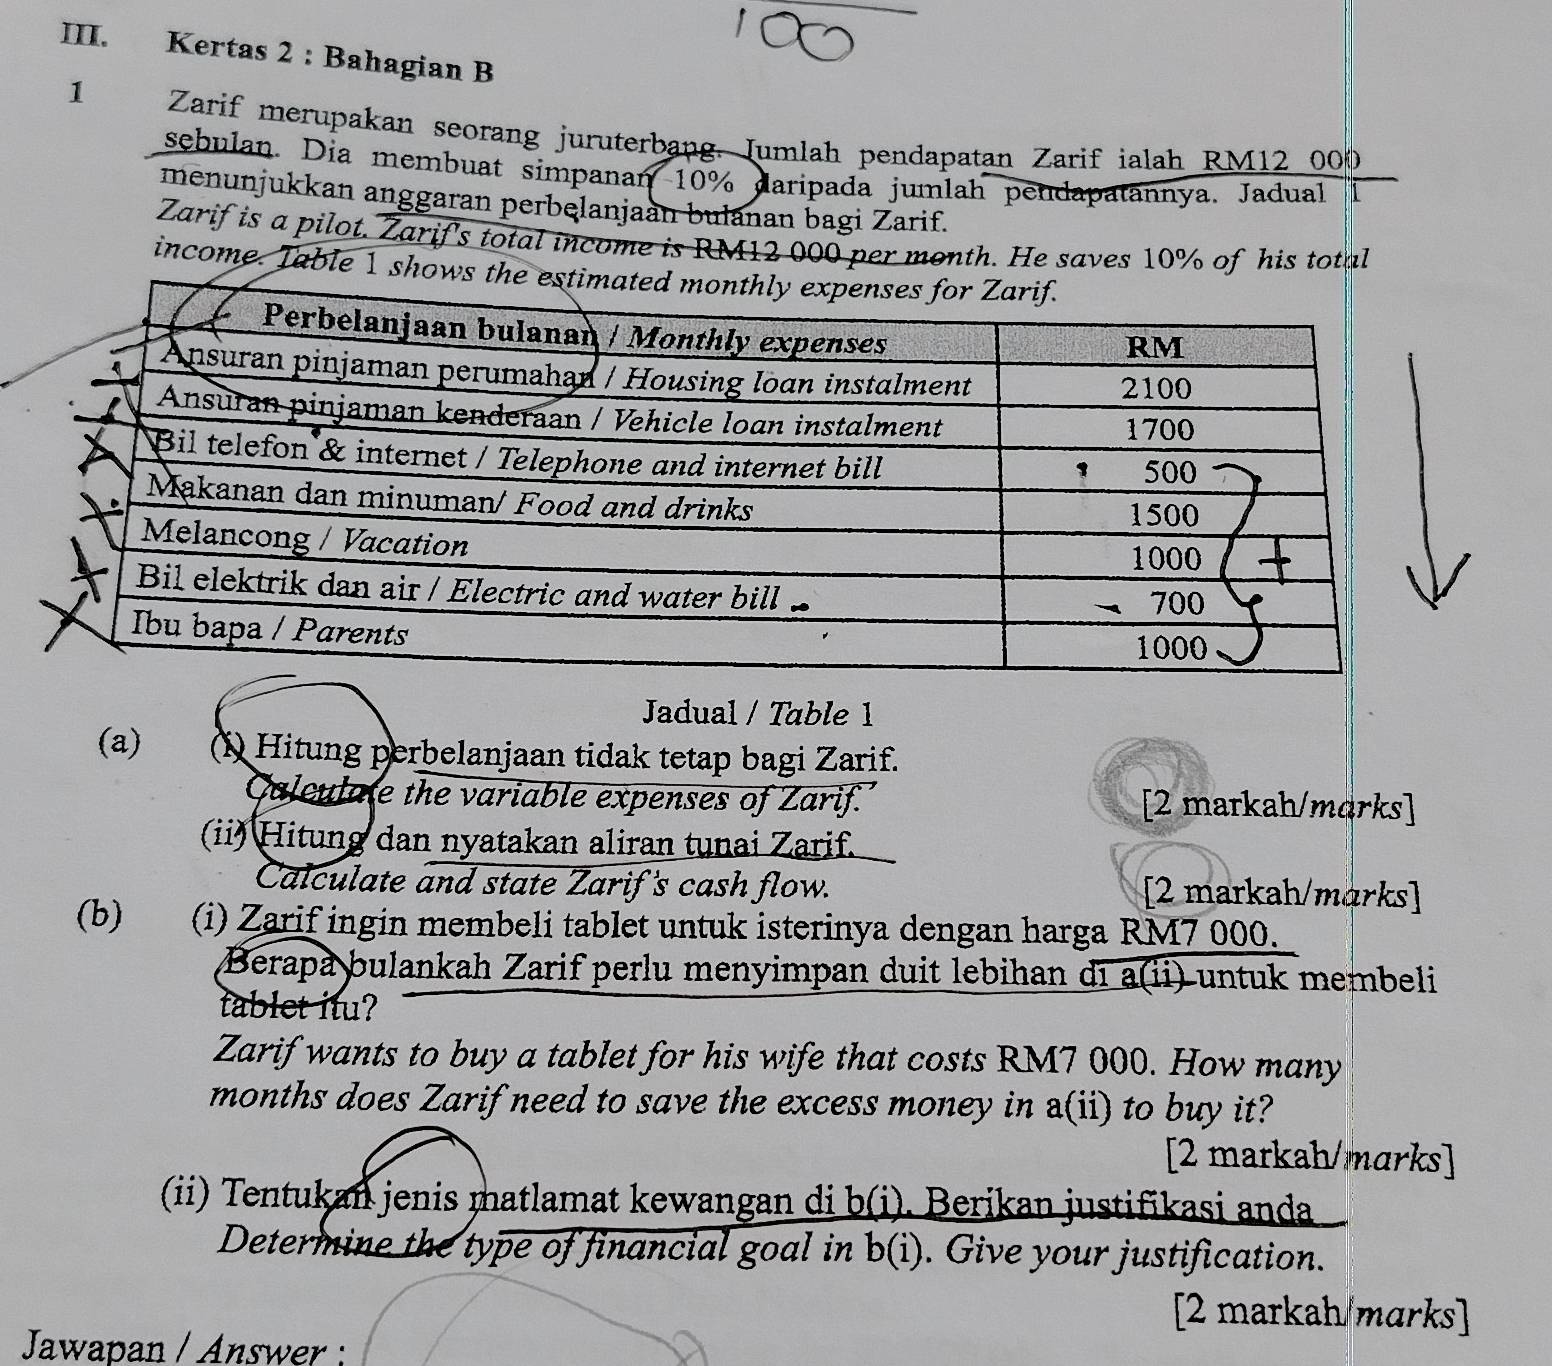 100
III. Kertas 2 : Bahagian B
1 Zarif merupakan seorang juruterbang. Jumlah pendapatan Zarif ialah RM12 000
sebulan. Dia membuat simpanan 10% daripada jumlah pendapatannya. Jadual 1
menunjukkan anggaran perbelanjaan bulanan bagi Zarif.
Zarif is a pilot. Zarif's total income is RM12 000 per month. He saves 10% of his total
income. Table 1 shows the estimated monthly expenses for Zarif.
Perbelanjaan bulanan / Monthly expenses RM
Ansuran pinjaman perumahan / Housing loan instalment 2100
Ansuran pinjaman kenderaan / Vehicle loan instalment 1700
Bil telefon & internet / Telephone and internet bill 500
Makanan dan minuman/ Food and drinks 1500
Melancong / Vacation 1000 +
Bil elektrik dan air / Electric and water bill 700
Ibu bapa / Parents 1000
Jadual / Table 1
(a) (i) Hitung perbelanjaan tidak tetap bagi Zarif.
Calculate the variable expenses of Zarif.
[2 markah/marks]
(ii) Hitung dan nyatakan aliran tunai Zarif.
Calculate and state Zarif's cash flow.
[2 markah/marks]
(b) (i) Zarif ingin membeli tablet untuk isterinya dengan harga RM7 000.
Berapa bulankah Zarif perlu menyimpan duit lebihan di a(ii) untuk membeli
tablet itu?
Zarif wants to buy a tablet for his wife that costs RM7 000. How many
months does Zarif need to save the excess money in a(ii) to buy it?
[2 markah/marks]
(ii) Tentukan jenis matlamat kewangan di b(i). Berikan justifikasi anda
Determine the type of financial goal in b(i). Give your justification.
[2 markah/marks]
Jawapan / Answer :